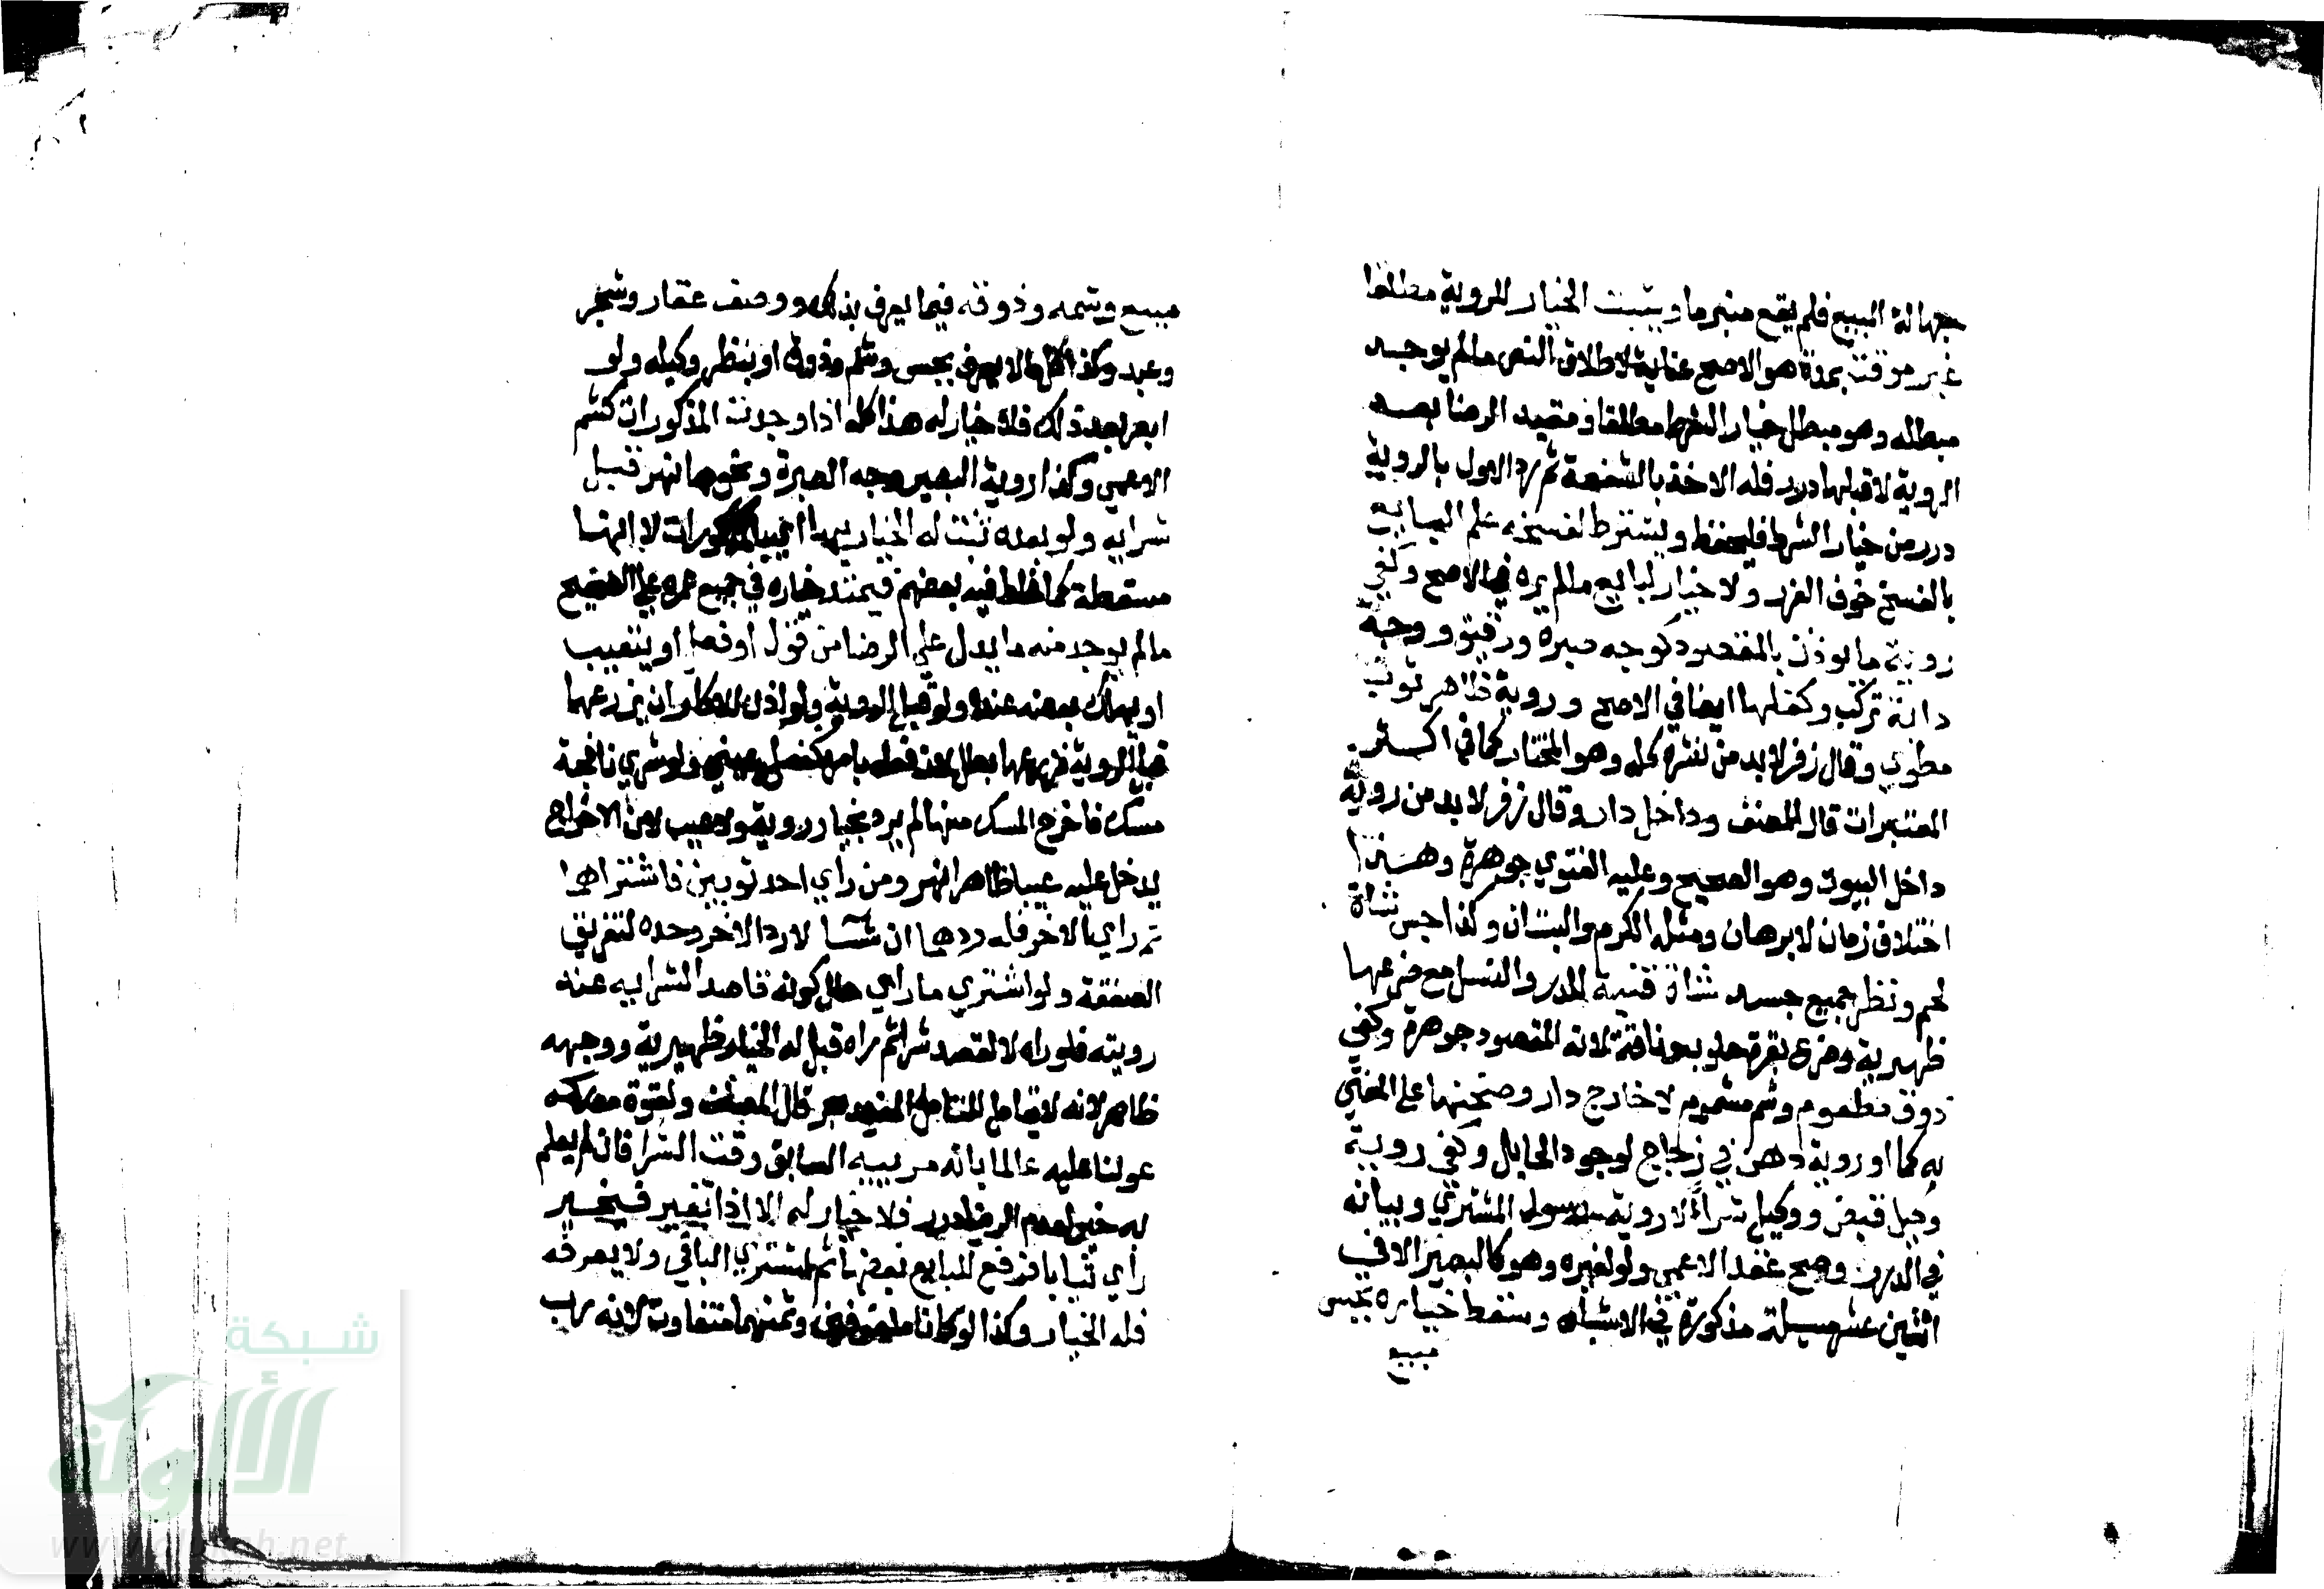 جهالة المبيع فلم يقع منبرما ويثبت الخيار للروية مطلقا
غير موقت بمدة هو الاصح عناية لاطلاق النص مالم يوجد
مبطله وهو مبطل خيار الشرط مطلقا ومفيد الرضا بعد
الروية لا قبلها درر فله الاخذ بالشفعة ثم رد الاول بالروية
درر من خيار الشرط فليحفظ ويشترط لفسخه علم البايع
بالفسخ خوف الغرر ولا خيار لبايع مالم يره في الاصح وكفي
روية ما يوذن بالمقصود كوجه صبرة ورقيق ووجه
دابة تركب وكفلها ايضا في الاصح وروية ظاهر ثوب
مطوي وقال زفر لا بد من نشره كله وهو المختار كما في اكثر
المعتبرات قاله المصنف وداخل دار وقال زفر لا بد من روية
داخل البيوت وهو الصحيح وعليه الفتوي جوهرة وهذا
اختلاف زمان لا برهان ومثله الكرم والبستان وكذا جس شاة
لحم ونظر جميع جسد شاة قنية للدر والنسل مع ضرعها
ظهيرية وضرع بقرة حلوب وناقة لانه المقصود جوهرة وكفي
ذوق مطعوم وشم مشموم لا خارج دار وصحنها علي المفتي
به كما او روية دهن في زجاج لوجود الحايل وكفي روية
وكيل قبض ووكيل شراء لا روية رسول المشتري وبيانه
في الدرر وصح عقد الاعمي ولو لغيره وهو كالبصير الا في
اثنين عشر مسيلة مذكورة في الاشباه وسقط خياره بجس
مبيع
مبيع وشمه وذوقه فيما يعرف بذلك ووصف عقار وشجر
وعبد وكذا كل ما لا يعرف بجس وشم وذوق او بنظر وكيله ولو
ابصر بعد ذلك فلا خيار له هذا كله اذا وجدت المذكورات كشم
الاعمي وكذا روية البصير وجه الصبرة ونحوها نهر قبل
شرايه ولو بعده ثبت له الخيار بها اي المذكورات لا انها
مسقطة كما غلط فيه بعضهم فيمتد خياره في جميع عمره علي الصحيح
مالم يوجد منه ما يدل علي الرضا من قول او فعل او يتعيب
او يهلك بعضه عنده ولو قبل الروية ولو اذن للاكار ان يزرعها
قبل الروية فزرعها بطل لان فعله بامره كفعله عيني ولو شري نافجة
مسك فاخرج المسك منها لم يرد بخيار روية ولا عيب لان الاخراج
يدخل عليه عيبا ظاهرا نهر ومن راي احد ثوبين فاشتراهما
ثم راي الاخر فله ردهما ان شا لا رد الاخر وحده لتفريق
الصفقة ولو اشتري ما راي حال كونه قاصدا لشرايه عند
رويته فلو راه لا لقصد شرا ثم شراه قيل له الخيار ظهيرية ووجهه
ظاهر لانه لا يتامل التامل المفيد بحر قال المصنف ولقوة مدركه
عولنا عليه عالما بانه مرييه السابق وقت الشرا فان لم يعلم
به خير لعدم الرضا درر فلا خيار له الا اذا تغير فيخير
راي ثيابا فرفع البايع بعضها ثم اشتري الباقي ولا يعرفه
فله الخيار وكذا لو كانا ملفوفين وثمنهما متفاوت لانه رب
شبكة
الألوكة
www.alukah.net